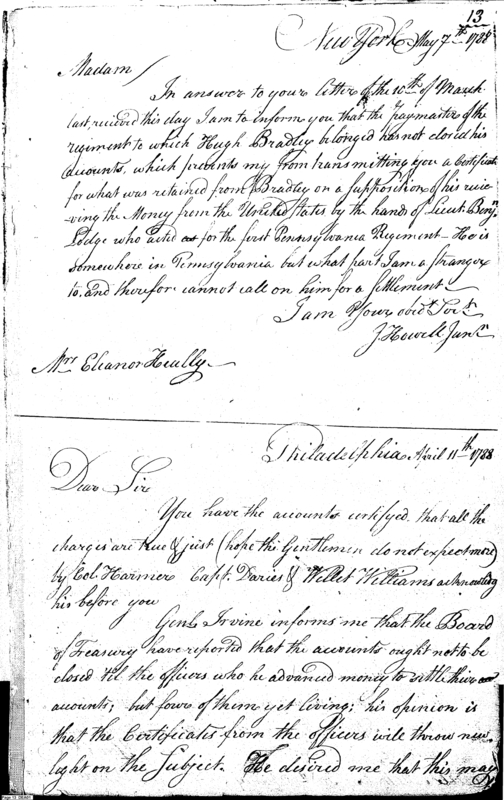 13
New York May 7th 1788
Madam
In answer to your letter of the 10th of March
last received this day I am to inform you that the Paymaster of the
regiment to which Hugh Bradley belonged has not closed his
accounts, which prevents my from transmitting you a Certificate
for what was retained from Bradley on a supposition of his recie
-ving the Money from the United States by the hands of Lieut. Benjn
Lodge who acted as for the first Pennsylvania Regiment - He is
somewhere in Pennsylvania but what part I am a stranger
to and therefore cannot call on him for a settlement
I am Your obdt Servt
J Howell Junr
Mrs Eleanor Heully
Philadelphia April 11th 1788
Dear Sir
You have the accounts certifyed that all the
charges are true & just (hope the Gentlemen do not expect more)
by Col. Harmer Capt. Davies & Willet Williams acknowledg
his before you
Genl. Irvine informs me that the Board
of Treasury have reported that the accounts ought not to be
closed til the officers who he advanced money to settle their
accounts; but fowe of them yet living; his opinion is
that the Certificates from the officers will throw new
light on the Subject. He desired me that this may